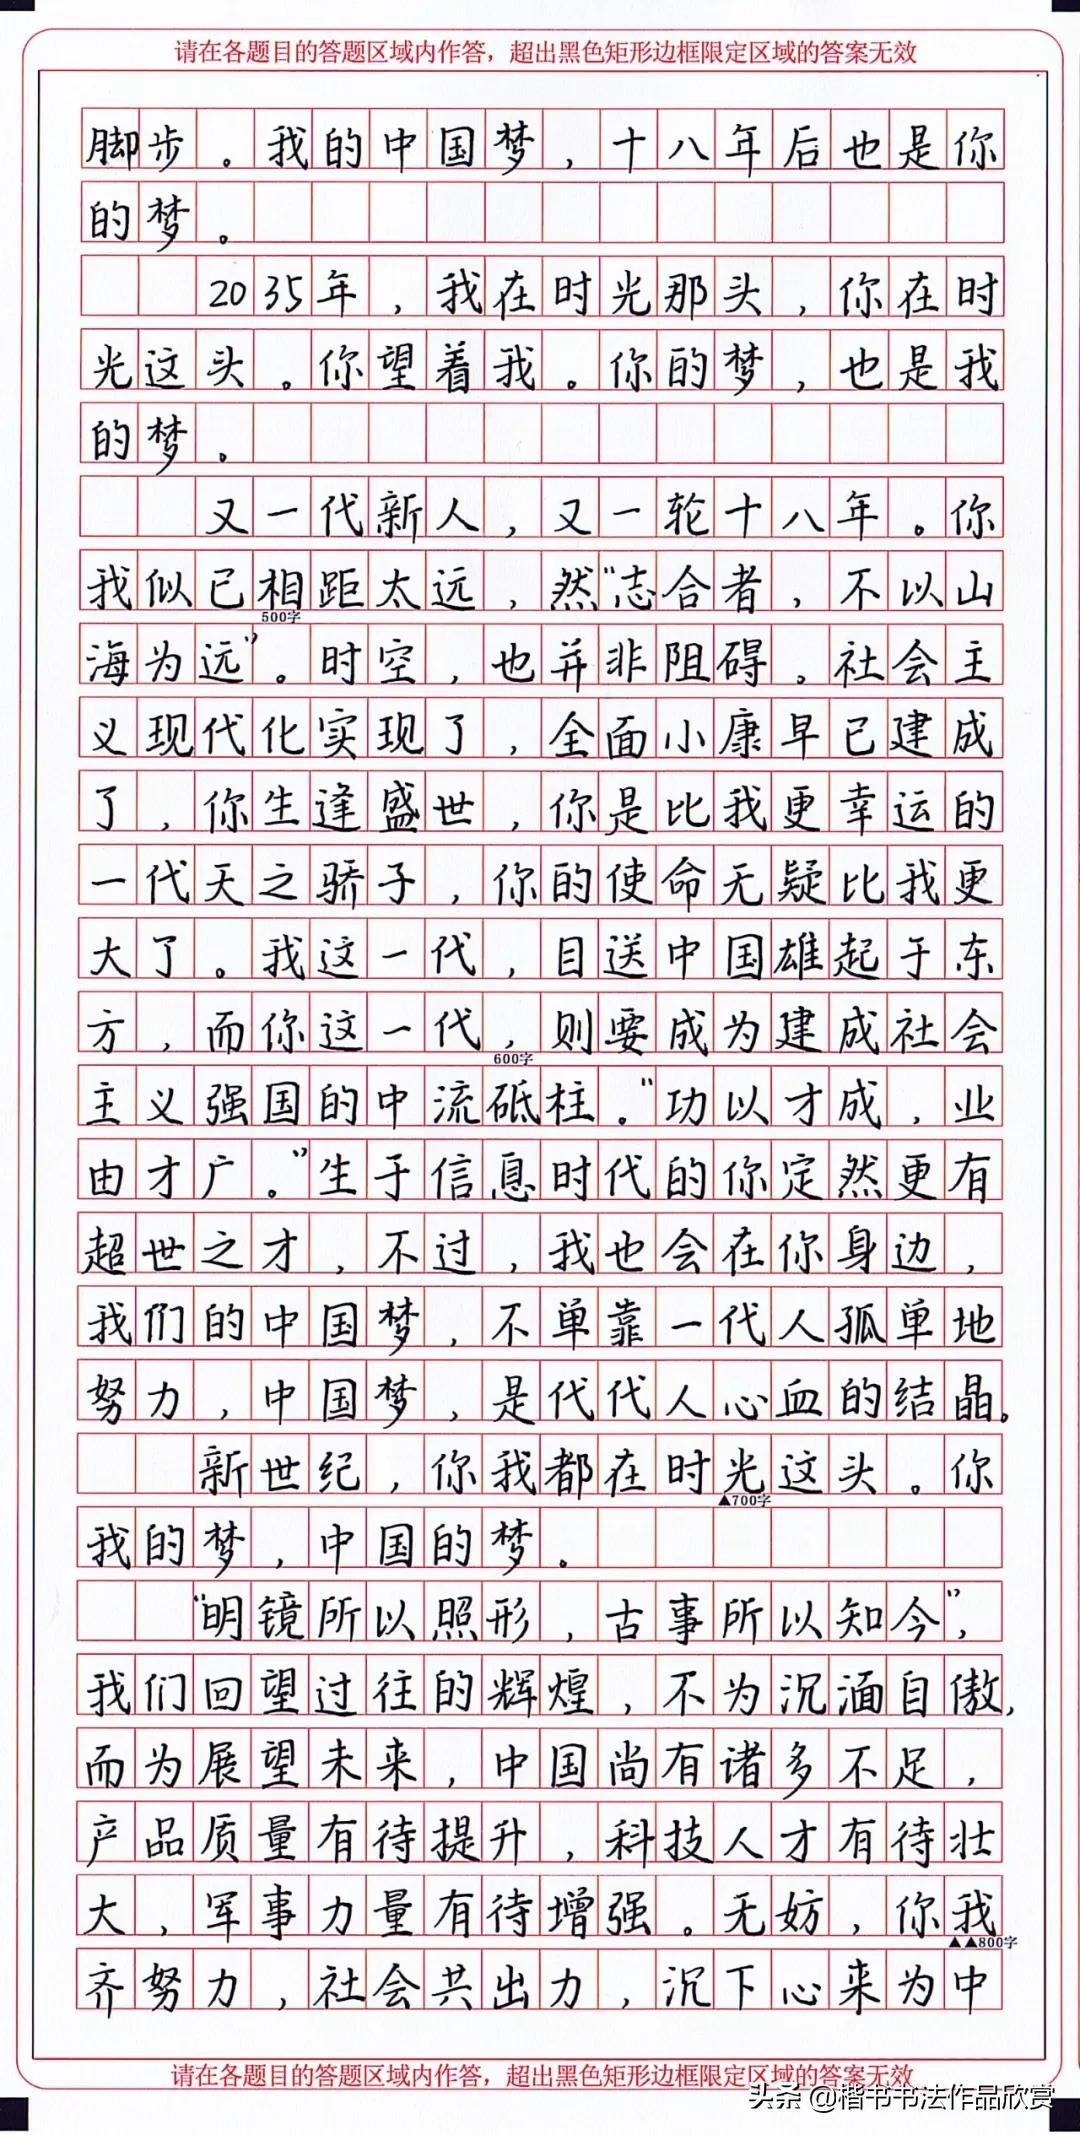 请在各题目的答题区域内作答，超出黑色矩形边框限定区域的答案无效
脚步。我的中国梦，十八年后也是你
的梦。
2035年，我在时光那头，你在时
光这头。你望着我。你的梦，也是我
的梦。
又一代新人，又一轮十八年。你
我似已相距太远，然“志合者，不以山
500字
海为远”。时空，也并非阻碍。社会主
义现代化实现了，全面小康早已建成
了，你生逢盛世，你是比我更幸运的
一代天之骄子，你的使命无疑比我更
大了。我这一代，目送中国雄起于东
方，而你这一代，则要成为建成社会
600字
主义强国的中流砥柱。“功以才成，业
由才广。”生于信息时代的你定然更有
超世之才，不过，我也会在你身边，
我们的中国梦，不单靠一代人孤单地
努力，中国梦，是代代人心血的结晶。
新世纪，你我都在时光这头。你
▲700字
我的梦，中国的梦。
“明镜所以照形，古事所以知今”，
我们回望过往的辉煌，不为沉湎自傲，
而为展望未来，中国尚有诸多不足，
产品质量有待提升，科技人才有待壮
大，军事力量有待增强。无妨，你我
▲▲800字
齐努力，社会共出力，沉下心来为中
请在各题目的答题区域内作答，超出黑色矩形边框限定区域的答案无效
头条 @楷书书法作品欣赏